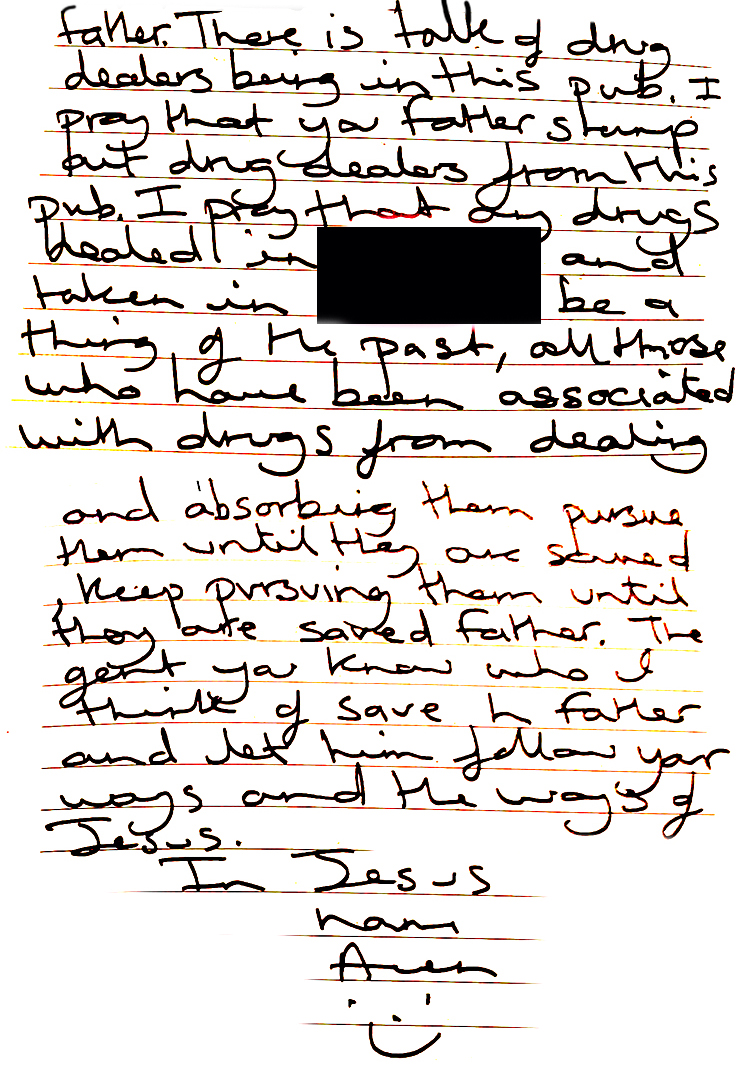 father. There is talk of drug
dealers being in this pub. I
pray that you father stump
out drug dealers from this
pub. I pray that any drugs
dealed in and
taken in be a
thing of the past, all those
who have been associated
with drugs from dealing
and absorbing them pursue
them until they are saved
, keep pursuing them until
they are saved father. The
gent you know who I
think of save h father
and let him follow your
ways and the ways of
Jesus.
In Jesus
name
Amen